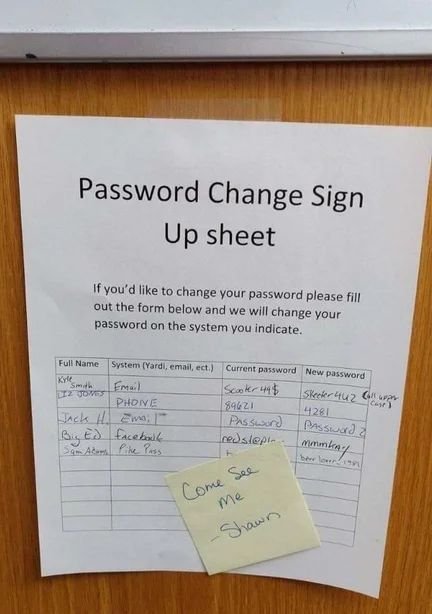 Password Change Sign
Up sheet
If you'd like to change your password please fill
out the form below and we will change your
password on the system you indicate.
Full Name System (Yardi, email, ect.) Current password New password
Kyle Smith Email Scooter 49$ Skeeter 4U2 (all upper case)
Liz Jones PHONE 89621 4281
Jack H. Email Password Password 2
Big Ed Facebook mmmkay
Sam Adams Pike Pass beer lover 1981
Come See
Me
- Shawn